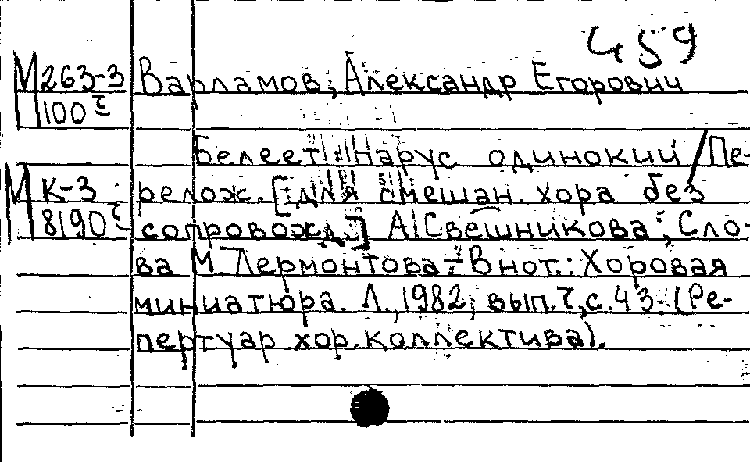 459
М263-3 Варламов, Александр Егорович
100
Белеет парус одинокий / Пе-
М К-3 релож. [для смешан. хора без
8190 сопровожд.] А. Свешникова; Сло-
ва М. Лермонтова. - В нот.: Хоровая
миниатюра. Л., 1982, вып. 7, с. 43. (Ре-
пертуар хор. коллектива).